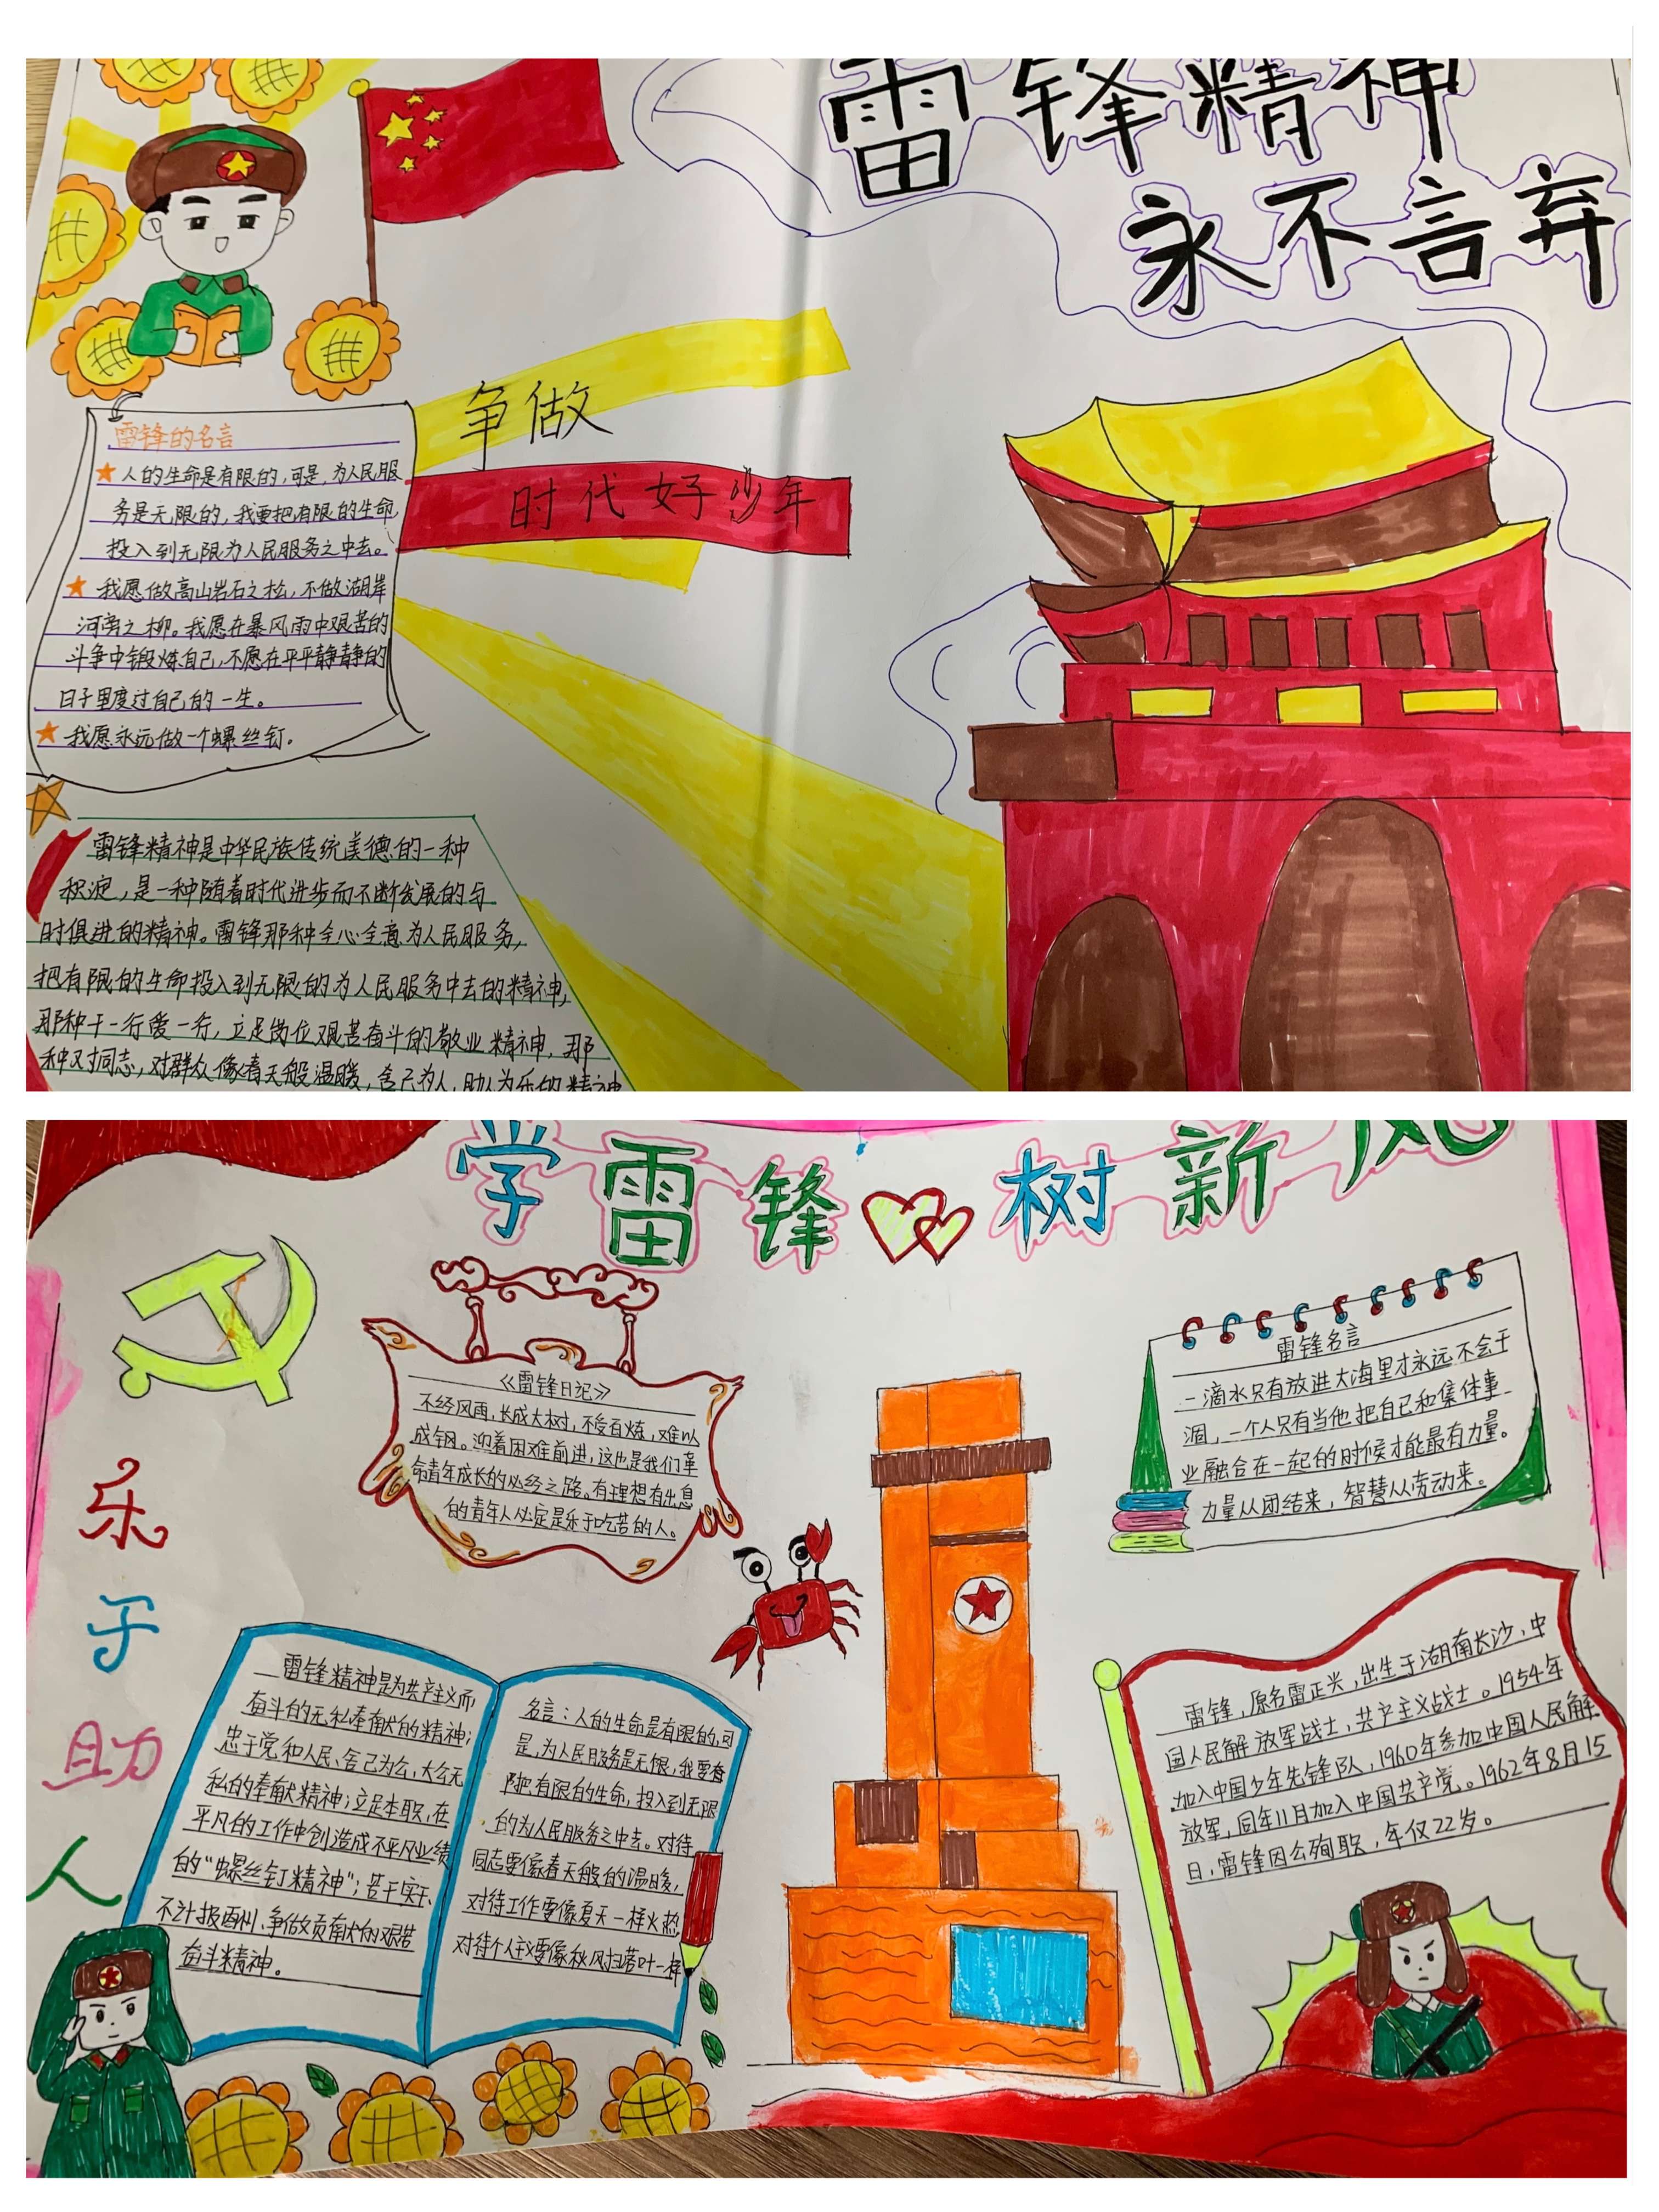 雷锋精神
永不言弃
争做
时代好少年
雷锋的名言
人的生命是有限的,可是,为人民服
务是无限的,我要把有限的生命
投入到无限为人民服务之中去。
我愿做高山岩石之松,不做湖岸
河旁之柳。我愿在暴风雨中艰苦的
斗争中锻炼自己,不愿在平平静静的
日子里度过自己的一生。
我愿永远做一个螺丝钉。
雷锋精神是中华民族传统美德的一种
积淀,是一种随着时代进步而不断发展的与
时俱进的精神。雷锋那种全心全意为人民服务,
把有限的生命投入到无限的为人民服务中去的精神,
那种干一行爱一行,立足岗位艰苦奋斗的敬业精神,那
种对同志,对群众像春天般温暖,舍己为人,助人为乐的精神
学雷锋 树新风
乐于助人
《雷锋日记》
不经风雨,长成大树,不受百炼,难以
成钢。迎着困难前进,这也是我们革
命青年成长的必经之路。有理想有出息
的青年人必定是乐于吃苦的人。
雷锋名言
一滴水只有放进大海里才永远不会干
涸,一个人只有当他把自己和集体事
业融合在一起的时候才能最有力量。
力量从团结来,智慧从劳动来。
雷锋精神是为共产主义而
奋斗的无私奉献的精神;
忠于党和人民、舍己为公,大公无
私的奉献精神;立足本职,在
平凡的工作中创造成不平凡业绩
的“螺丝钉精神”;苦干实干、
不计报酬、争做贡献的艰苦
奋斗精神。
名言:人的生命是有限的,可
是,为人民服务是无限,我要有
限把有限的生命,投入到无限
的为人民服务之中去。对待
同志要像春天般的温暖,
对待工作要像夏天一样火热,
对待个人主义要像秋风扫落叶一样
雷锋,原名雷正兴,出生于湖南长沙,中
国人民解放军战士,共产主义战士。1954年
加入中国少年先锋队,1960年参加中国人民解
放军,同年11月加入中国共产党。1962年8月15
日,雷锋因公殉职,年仅22岁。